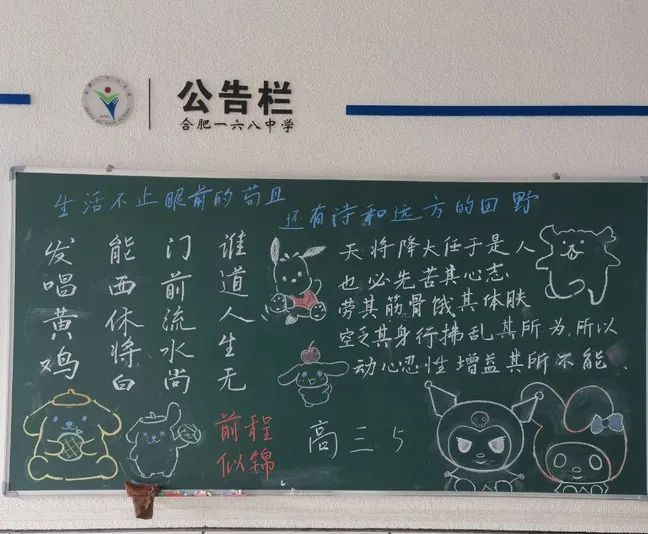 公告栏
合肥一六八中学
生活不止眼前的苟且
还有诗和远方的田野
谁道人生无
门前流水尚
能西休将白
发唱黄鸡
天将降大任于是人
也必先苦其心志
劳其筋骨饿其体肤
空乏其身行拂乱其所为,所以
动心忍性增益其所不能.
前程
似锦
高三5